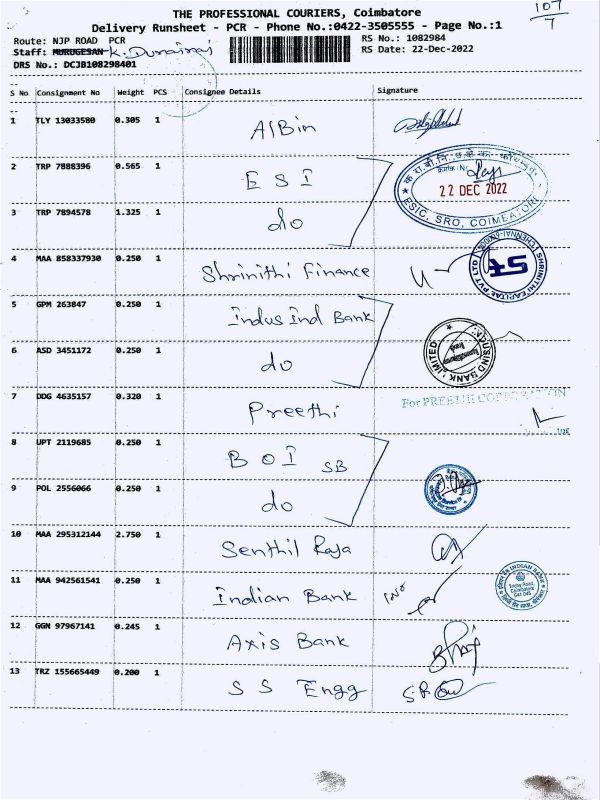 107
7
THE PROFESSIONAL COURIERS, Coimbatore
Delivery Runsheet - PCR - Phone No.:0422-3505555 - Page No.:1
Route: NJP ROAD PCR
RS No.: 1082984
Staff: MURUGESAN K. Durairaj
RS Date: 22-Dec-2022
DRS No.: DCJB108298401
S No Consignment No Weight PCS Consignee Details Signature
1 TLY 13033580 0.305 1 AlBin
2 TRP 7888396 0.565 1 ESI
22 DEC 2022
ESIC, SRO, COIMBATORE
3 TRP 7894578 1.325 1 do
4 MAA 858337930 0.250 1 Shrinithi Finance
SHRINITHI CAPITAL PVT LTD
5 GPM 263847 0.250 1 IndusInd Bank
6 ASD 3451172 0.250 1 do
INDUSIND BANK LIMITED
7 DDG 4635157 0.320 1 Preethi
For PREETHI CORPORATION
8 UPT 2119685 0.250 1 BOI SB
9 POL 2556066 0.250 1 do
10 MAA 295312144 2.750 1 Senthil Raja
11 MAA 942561541 0.250 1 Indian Bank
INDIAN BANK
12 GGN 97967141 0.245 1 Axis Bank
13 TRZ 155665449 0.200 1 S S Engg